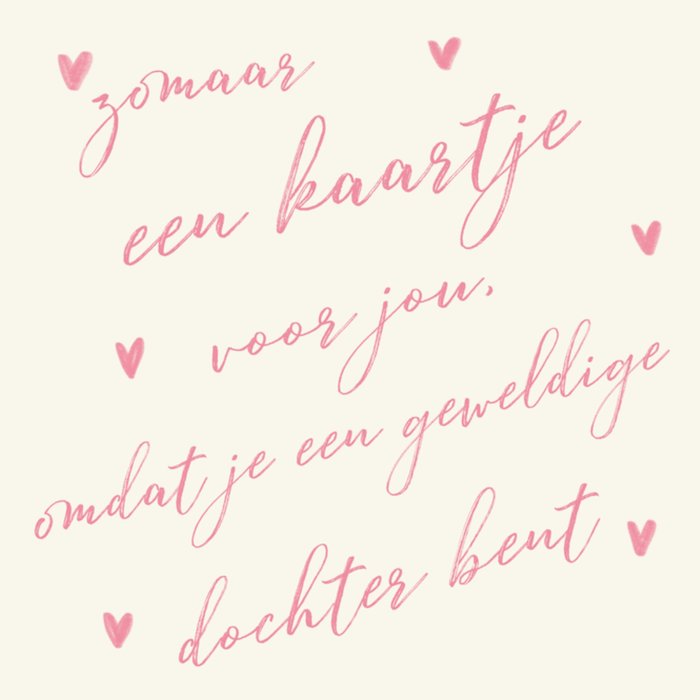 zomaar
een kaartje
voor jou,
omdat je een geweldige
dochter bent